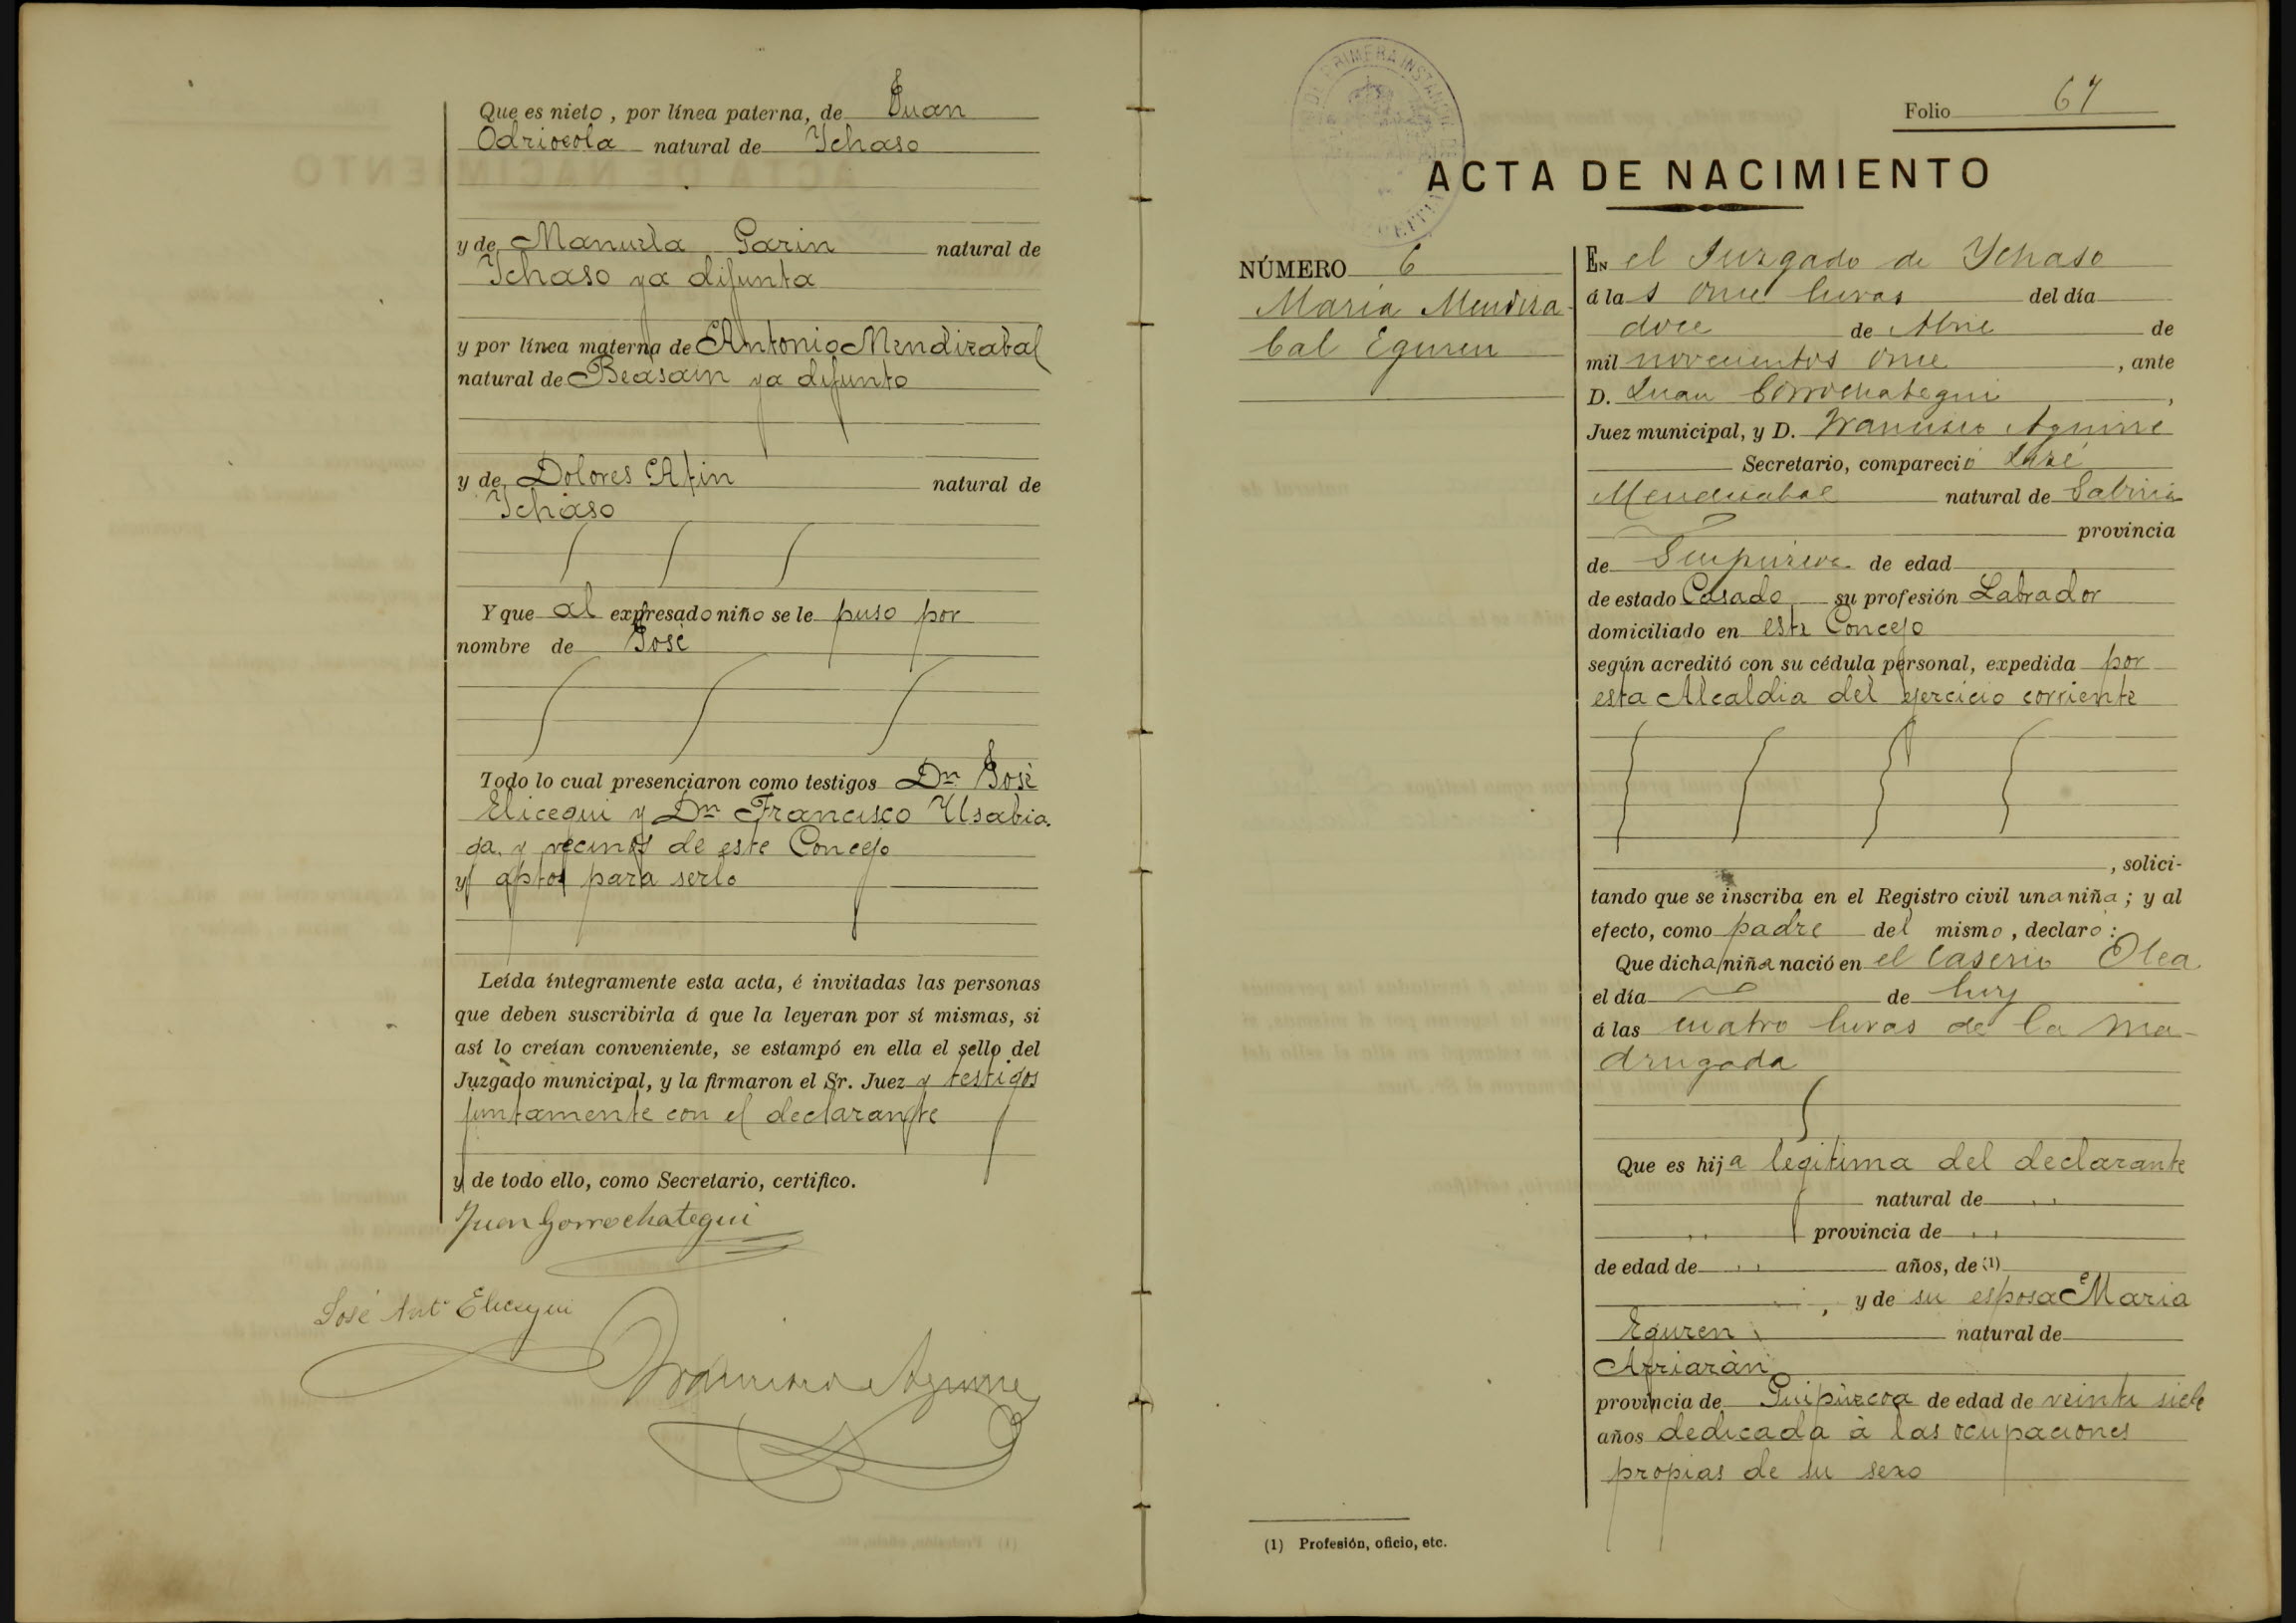 Que es nieto, por línea paterna, de Juan
Odriozola natural de Ychaso
y de Manuela Garin natural de
Ychaso ya difunta
y por línea materna de Antonio Mendizabal
natural de Beasain ya difunto
y de Dolores natural de
Ychaso
Y que al expresado niño se le puso por
nombre de José
Todo lo cual presenciaron como testigos Dn José
Elicegui y Dn Francisco Usabia-
ga, y vecinos de este Concejo
y aptos para serlo
Leída íntegramente esta acta, é invitadas las personas
que deben suscribirla á que la leyeran por sí mismas, si
así lo creían conveniente, se estampó en ella el sello del
Juzgado municipal, y la firmaron el Sr. Juez y testigos
juntamente con el declarante
y de todo ello, como Secretario, certifico.
Juan Gorrochategui
José Antº Elicegui
Francisco Aguirre
DE PRIMERA INSTANCIA
Folio 67
ACTA DE NACIMIENTO
NÚMERO 6
María Mendiza
bal Eguren
EN el Juzgado de Ychaso
á las once horas del día
doce de Abril de
mil novecientos once, ante
D. Juan Gorrochategui,
Juez municipal, y D. Francisco Aguirre
Secretario, compareció José
Mendizabal natural de
provincia
de Guipúzcoa de edad
de estado Casado su profesión Labrador
domiciliado en este Concejo
según acreditó con su cédula personal, expedida por
esta Alcaldia del ejercicio corriente
, solici-
tando que se inscriba en el Registro civil una niña; y al
efecto, como padre del mismo, declaró:
Que dicha niña nació en el Caserio Olea
el día de hoy
á las cuatro horas de la ma-
drugada
Que es hija legitima del declarante
natural de
provincia de
de edad de años, de (1)
, y de su esposa Maria
Eguren natural de
Arriarán
provincia de Guipúzcoa de edad de veinte siete
años dedicada à las ocupaciones
propias de su sexo
(1) Profesión, oficio, etc.